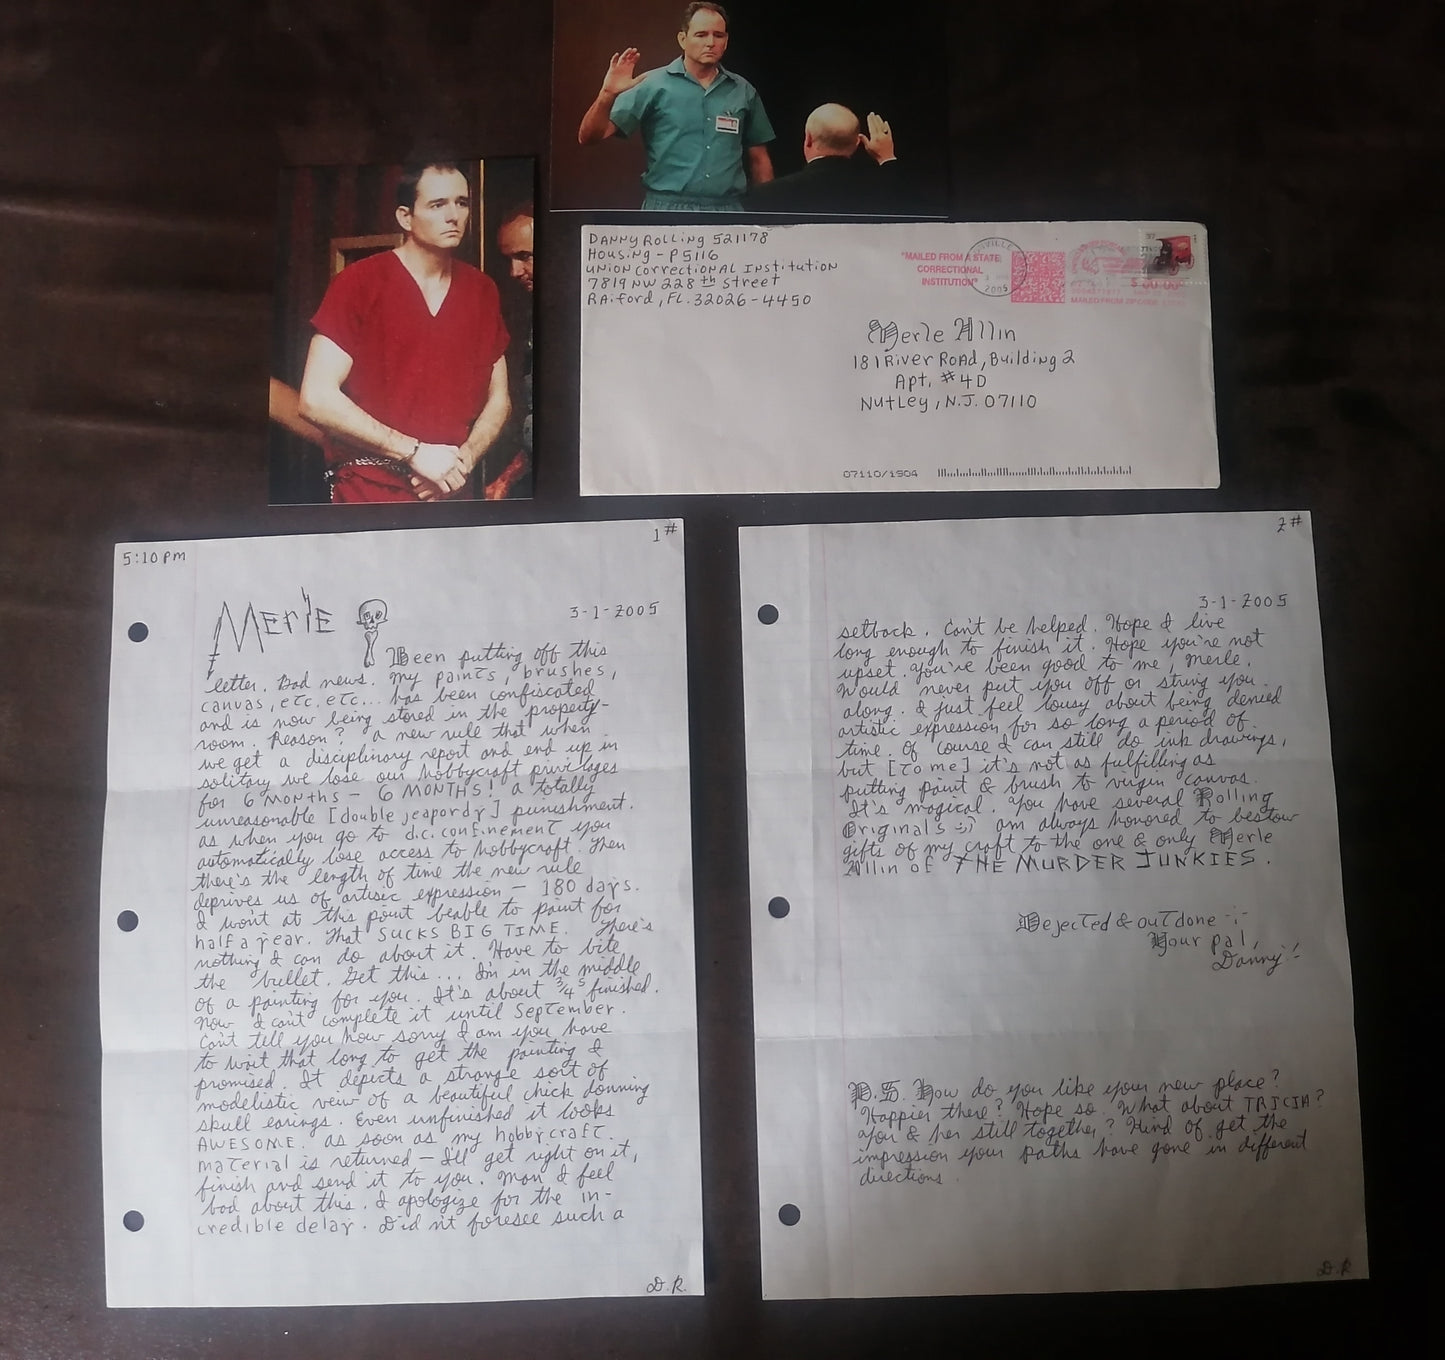 DANNY Rolling 521178
Housing - P5116
Union Correctional Institution
7819 NW 228th Street
RAiford, FL. 32026-4450
"MAILED FROM A STATE
CORRECTIONAL
INSTITUTION"
2005
$ 00.00
MAILED FROM ZIPCODE
Merle Allin
181 River Road, Building 2
Apt. #4D
Nutley, N.J. 07110
07110/1904
1#
5:10 pm
MErlE
3-1-2005
Been putting off this
letter. Bad news. My paints, brushes,
canvas, etc. etc... has been confiscated
and is now being stored in the property-
room. Reason? a new rule that when
we get a disciplinary report and end up in
solitary we lose our hobbycraft privileges
for 6 MONTHS - 6 MONTHS! a totally
unreasonable [double jeapordy] punishment.
as when you go to d.c. confinement you
automatically lose access to hobbycraft. Then
there's the length of time the new rule
deprives us of artisic expression - 180 days.
I won't at this point beable to paint for
half a year. That SUCKS BIG TIME. There's
nothing I can do about it. Have to bite
the bullet. Get this... I'm in the middle
of a painting for you. It's about 3/4s finished.
Now I can't complete it until September.
Can't tell you how sorry I am you have
to wait that long to get the painting I
promised. It depicts a strange sort of
modelistic veiw of a beautiful chick donning
skull earings. Even unfinished it looks
AWESOME. as soon as my hobbycraft
material is returned - I'll get right on it,
finish and send it to you. Man I feel
bad about this. I apologize for the in-
credible delay. Did n't foresee such a
D.R.
2#
3-1-2005
setback. Can't be helped. Hope I live
long enough to finish it. Hope you're not
upset. You've been good to me, Merle.
Would never put you off or string you
along. I just feel lousy about being denied
artistic expression for so long a period of
time. Of course I can still do ink drawings,
but [to me] it's not as fulfilling as
putting paint & brush to virgin canvas.
It's magical. You have several Rolling
Originals am always honored to bestow
gifts of my craft to the one & only Merle
Allin of THE MURDER JUNKIES.
Dejected & outdone
Your pal,
Danny!
P.S. How do you like your new place?
Happier there? Hope so. What about TRICIA?
You & her still together? Kind of get the
impression your paths have gone in different
directions.
D.R.